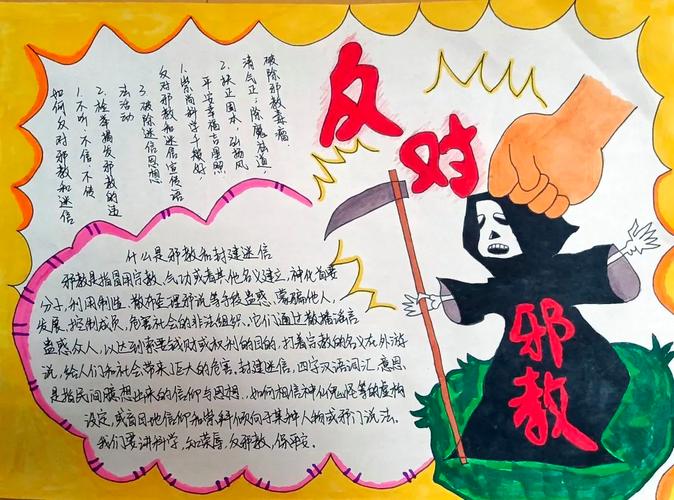 反对
如何反对邪教和迷信
1、不听、不信、不传
2、检举揭发邪教的违
法活动
3、破除迷信思想
反对邪教和迷信宣传语
1、崇尚科学千般好，
平安幸福吉星照
2、扶正固本 弘扬风
清气正；除魔祛道，
破除邪教毒瘤
什么是邪教和封建迷信
邪教是指冒用宗教、气功或者其他名义建立，神化首要
分子，利用制造、散布歪理邪说等手段蛊惑、蒙骗他人，
发展、控制成员，危害社会的非法组织。它们通过散播谣言
蛊惑众人，以达到索要钱财或权利的目的，打着宗教的名义在外游
说，给人们和社会带来了巨大的危害，封建迷信，四字汉语词汇，意思
是指民间臆想出来的信仰与思想。如何相信神仙鬼怪等的虚构
设定，或盲目地信仰和崇拜倾向于某种人物或邪门说法。
我们要讲科学，知荣辱，反邪教，保平安。
邪教